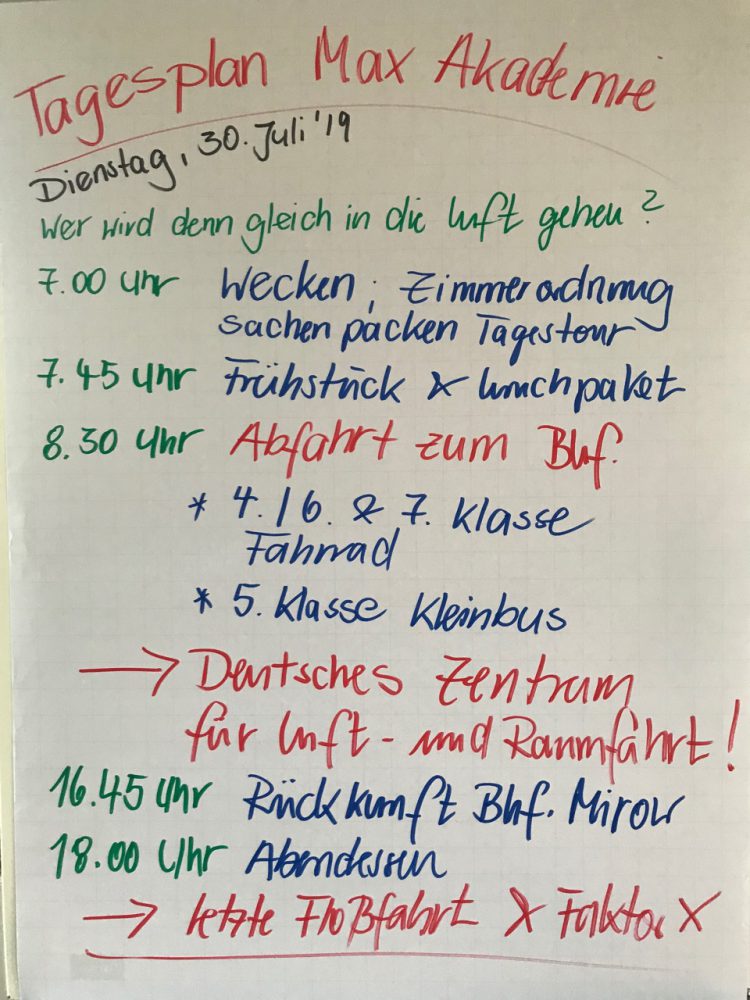 Tagesplan Max Akademie
Dienstag, 30. Juli '19
Wer wird denn gleich in die Luft gehen?
7.00 Uhr Wecken, Zimmerordnung
Sachen packen Tagestour
7.45 Uhr Frühstück & Lunchpaket
8.30 Uhr Abfahrt zum Bhf.
* 4. / 6. & 7. Klasse
Fahrrad
* 5. Klasse Kleinbus
→ Deutsches Zentrum
für Luft- und Raumfahrt!
16.45 Uhr Rückkunft Bhf. Mirow
18.00 Uhr Abendessen
→ letzte Floßfahrt X Faktor X